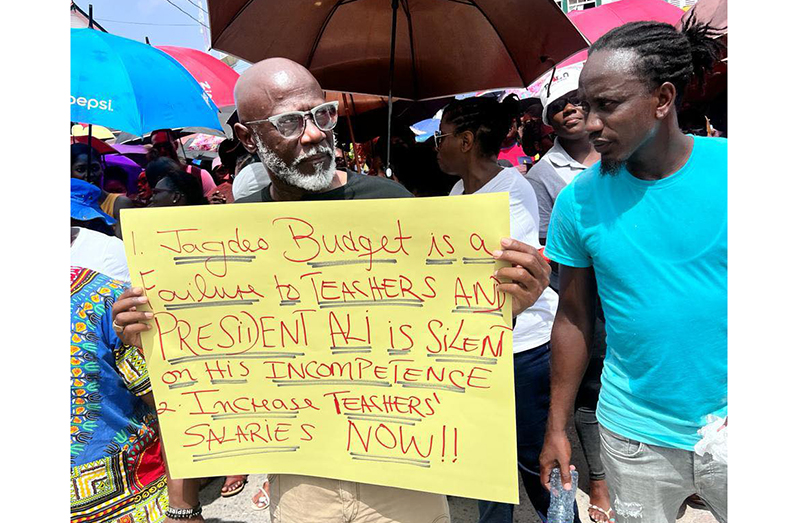 pepsi
1. Jagdeo Budget is a
Failure to TEACHERS AND
PRESIDENT ALI is SILENT
ON HIS INCOMPETENCE
2. INCREASE TEACHERS'
SALARIES NOW!!